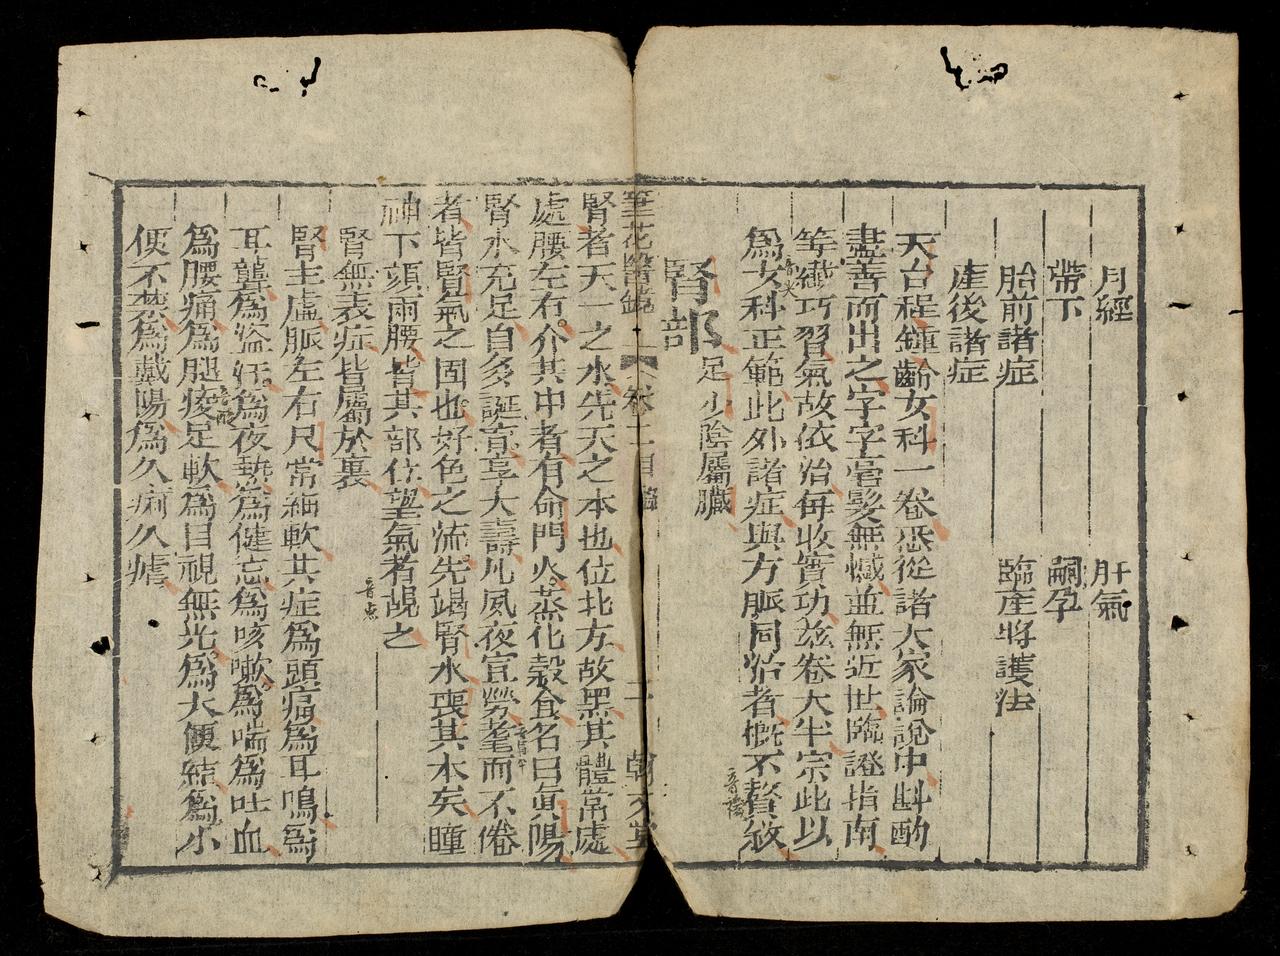 月經　肝氣
帶下　嗣孕
胎前諸症　臨產將護法
產後諸症
天台程鍾齡女科一卷悉從諸大家論說中斟酌
盡善而出之字字毫髮無憾並無近世臨證指南
等纖巧習氣故依治每收實功茲卷大半宗此以
為女科正範此外諸症與方脈同治者概不贅敘
腎部
足少陰屬臟
筆花醫鏡　卷二
腎者天一之水先天之本也位北方故黑其體常處
處腰左右介其中者有命門火蒸化穀食名曰真陽
腎水充足自多誕育享大壽凡夙夜宣勞耄而不倦
者皆腎氣之固也好色之流先竭腎水喪其本矣瞳
神下頦兩腰皆其部位望氣者覘之
腎無表症皆屬於裏
腎主虛脈左右尺常細軟其症為頭痛為耳鳴為
耳聾為盜汗為夜熱為健忘為咳嗽為喘為吐血
為腰痛為腿痠足軟為目視無光為大便結為小
便不禁為戴陽為久痢久瘧